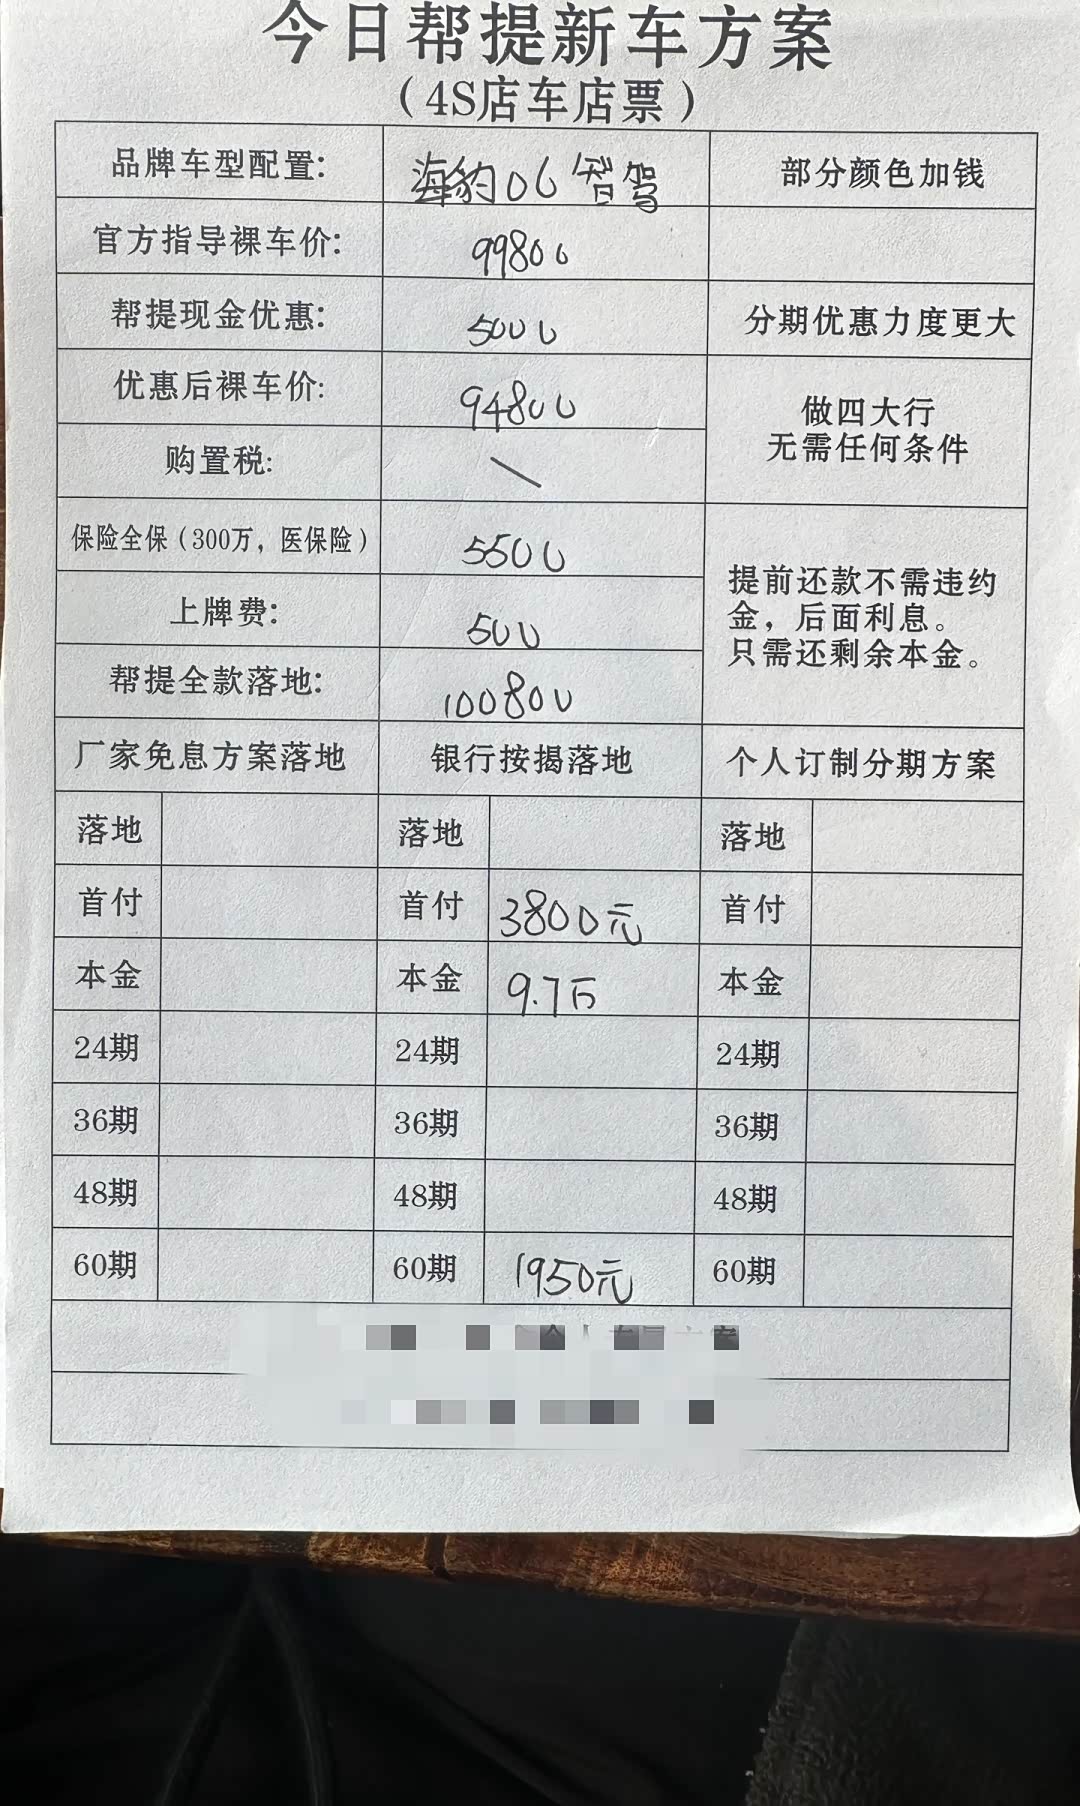 今日帮提新车方案
（4S店车店票）
品牌车型配置: 海豹06智驾 部分颜色加钱
官方指导裸车价: 99800
帮提现金优惠: 5000 分期优惠力度更大
优惠后裸车价: 94800 做四大行
无需任何条件
购置税: \
保险全保（300万，医保险） 5500 提前还款不需违约
金，后面利息。
只需还剩余本金。
上牌费: 500
帮提全款落地: 100800
厂家免息方案落地 银行按揭落地 个人订制分期方案
落地 落地 落地
首付 首付 3800元 首付
本金 本金 9.7万 本金
24期 24期 24期
36期 36期 36期
48期 48期 48期
60期 60期 1950元 60期